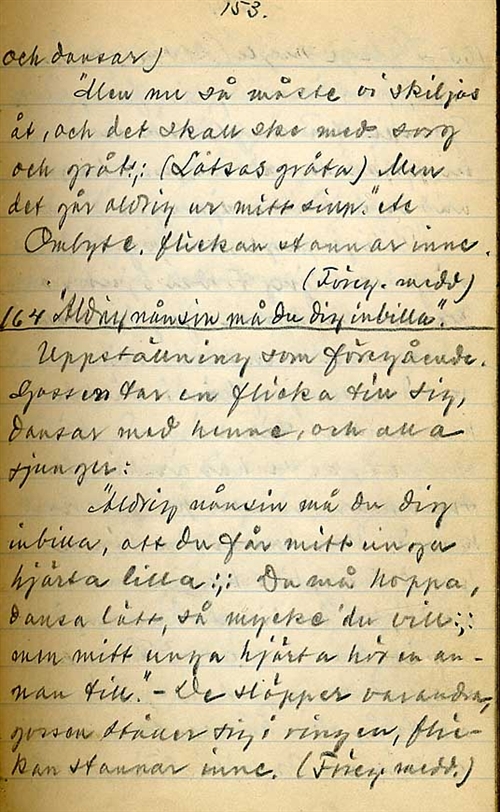 153.
och dansar)
"Men nu så måste vi skiljas
åt, och det skall ske med sorg
och gråt:,: (Låtsas gråta) Men
det går aldrig ur mitt sinn." etc
Ombyte, flickan stannar inne.
(Föreg. medd)
164 "Aldrig nånsin må du dig inbilla".
Uppställning som föregående.
Gossen tar en flicka till sig,
dansar med henne, och alla
sjunger:
"Aldrig nånsin må du dig
inbilla, att du får mitt unga
hjärta lilla :,: Du må hoppa,
dansa lätt, så mycke' du vill:,:
men mitt unga hjärta hör en an-
nan till." - De släpper varandra,
gossen ställer sig i ringen, flic-
kan stannar inne. (Föreg. medd.)